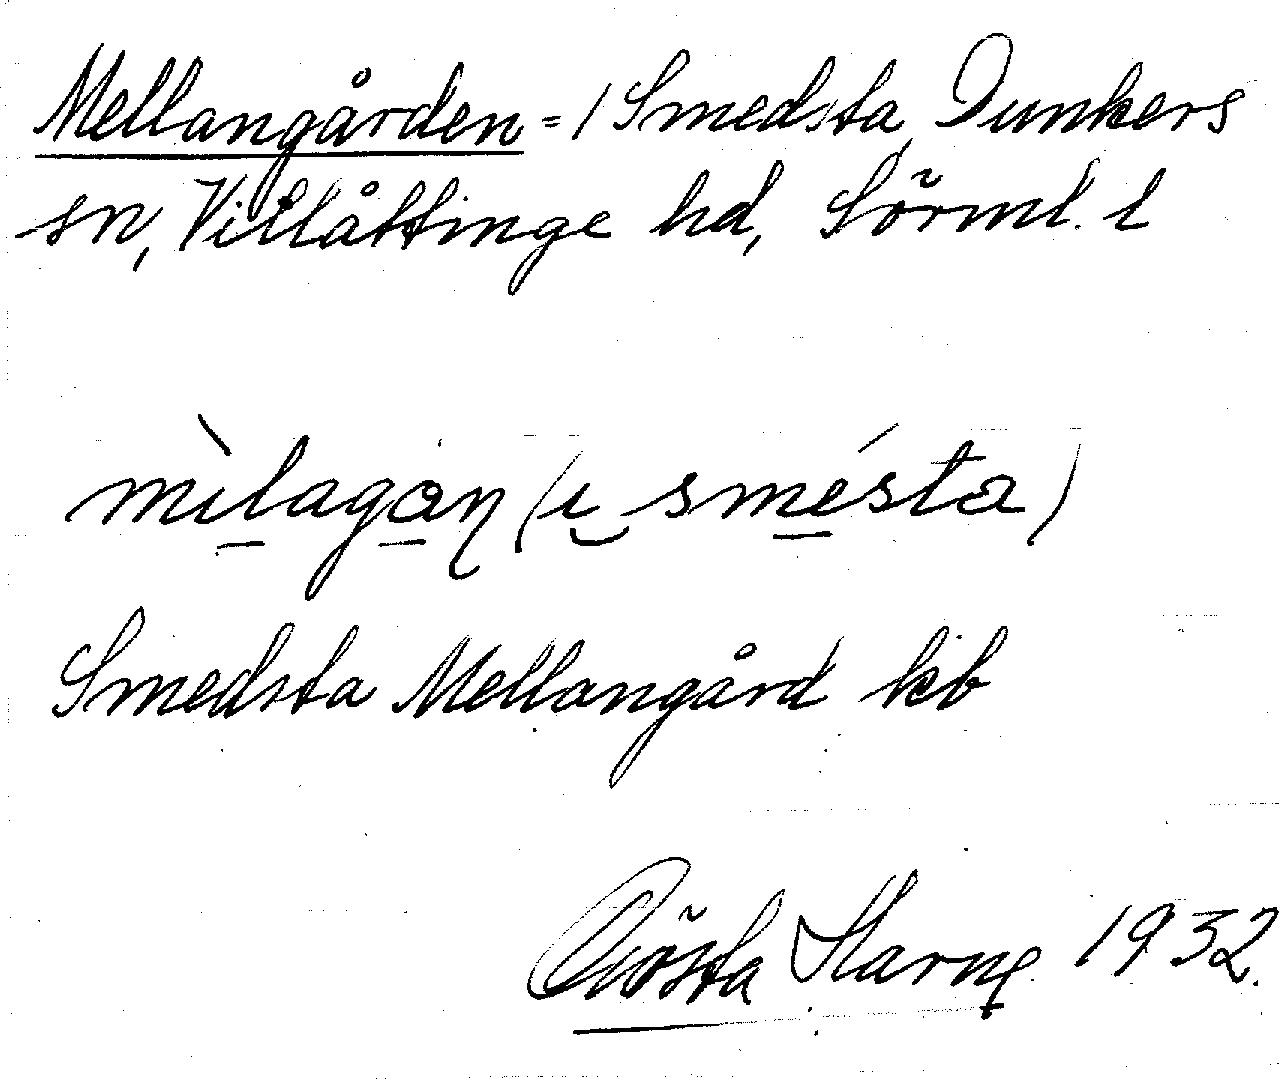 Mellangården = / Smedsta, Dunkers
sn, Villåttinge hd, Sörml. l
mìlagan̨ (i smésta)
Smedsta Mellangård kb
Gösta 1932.